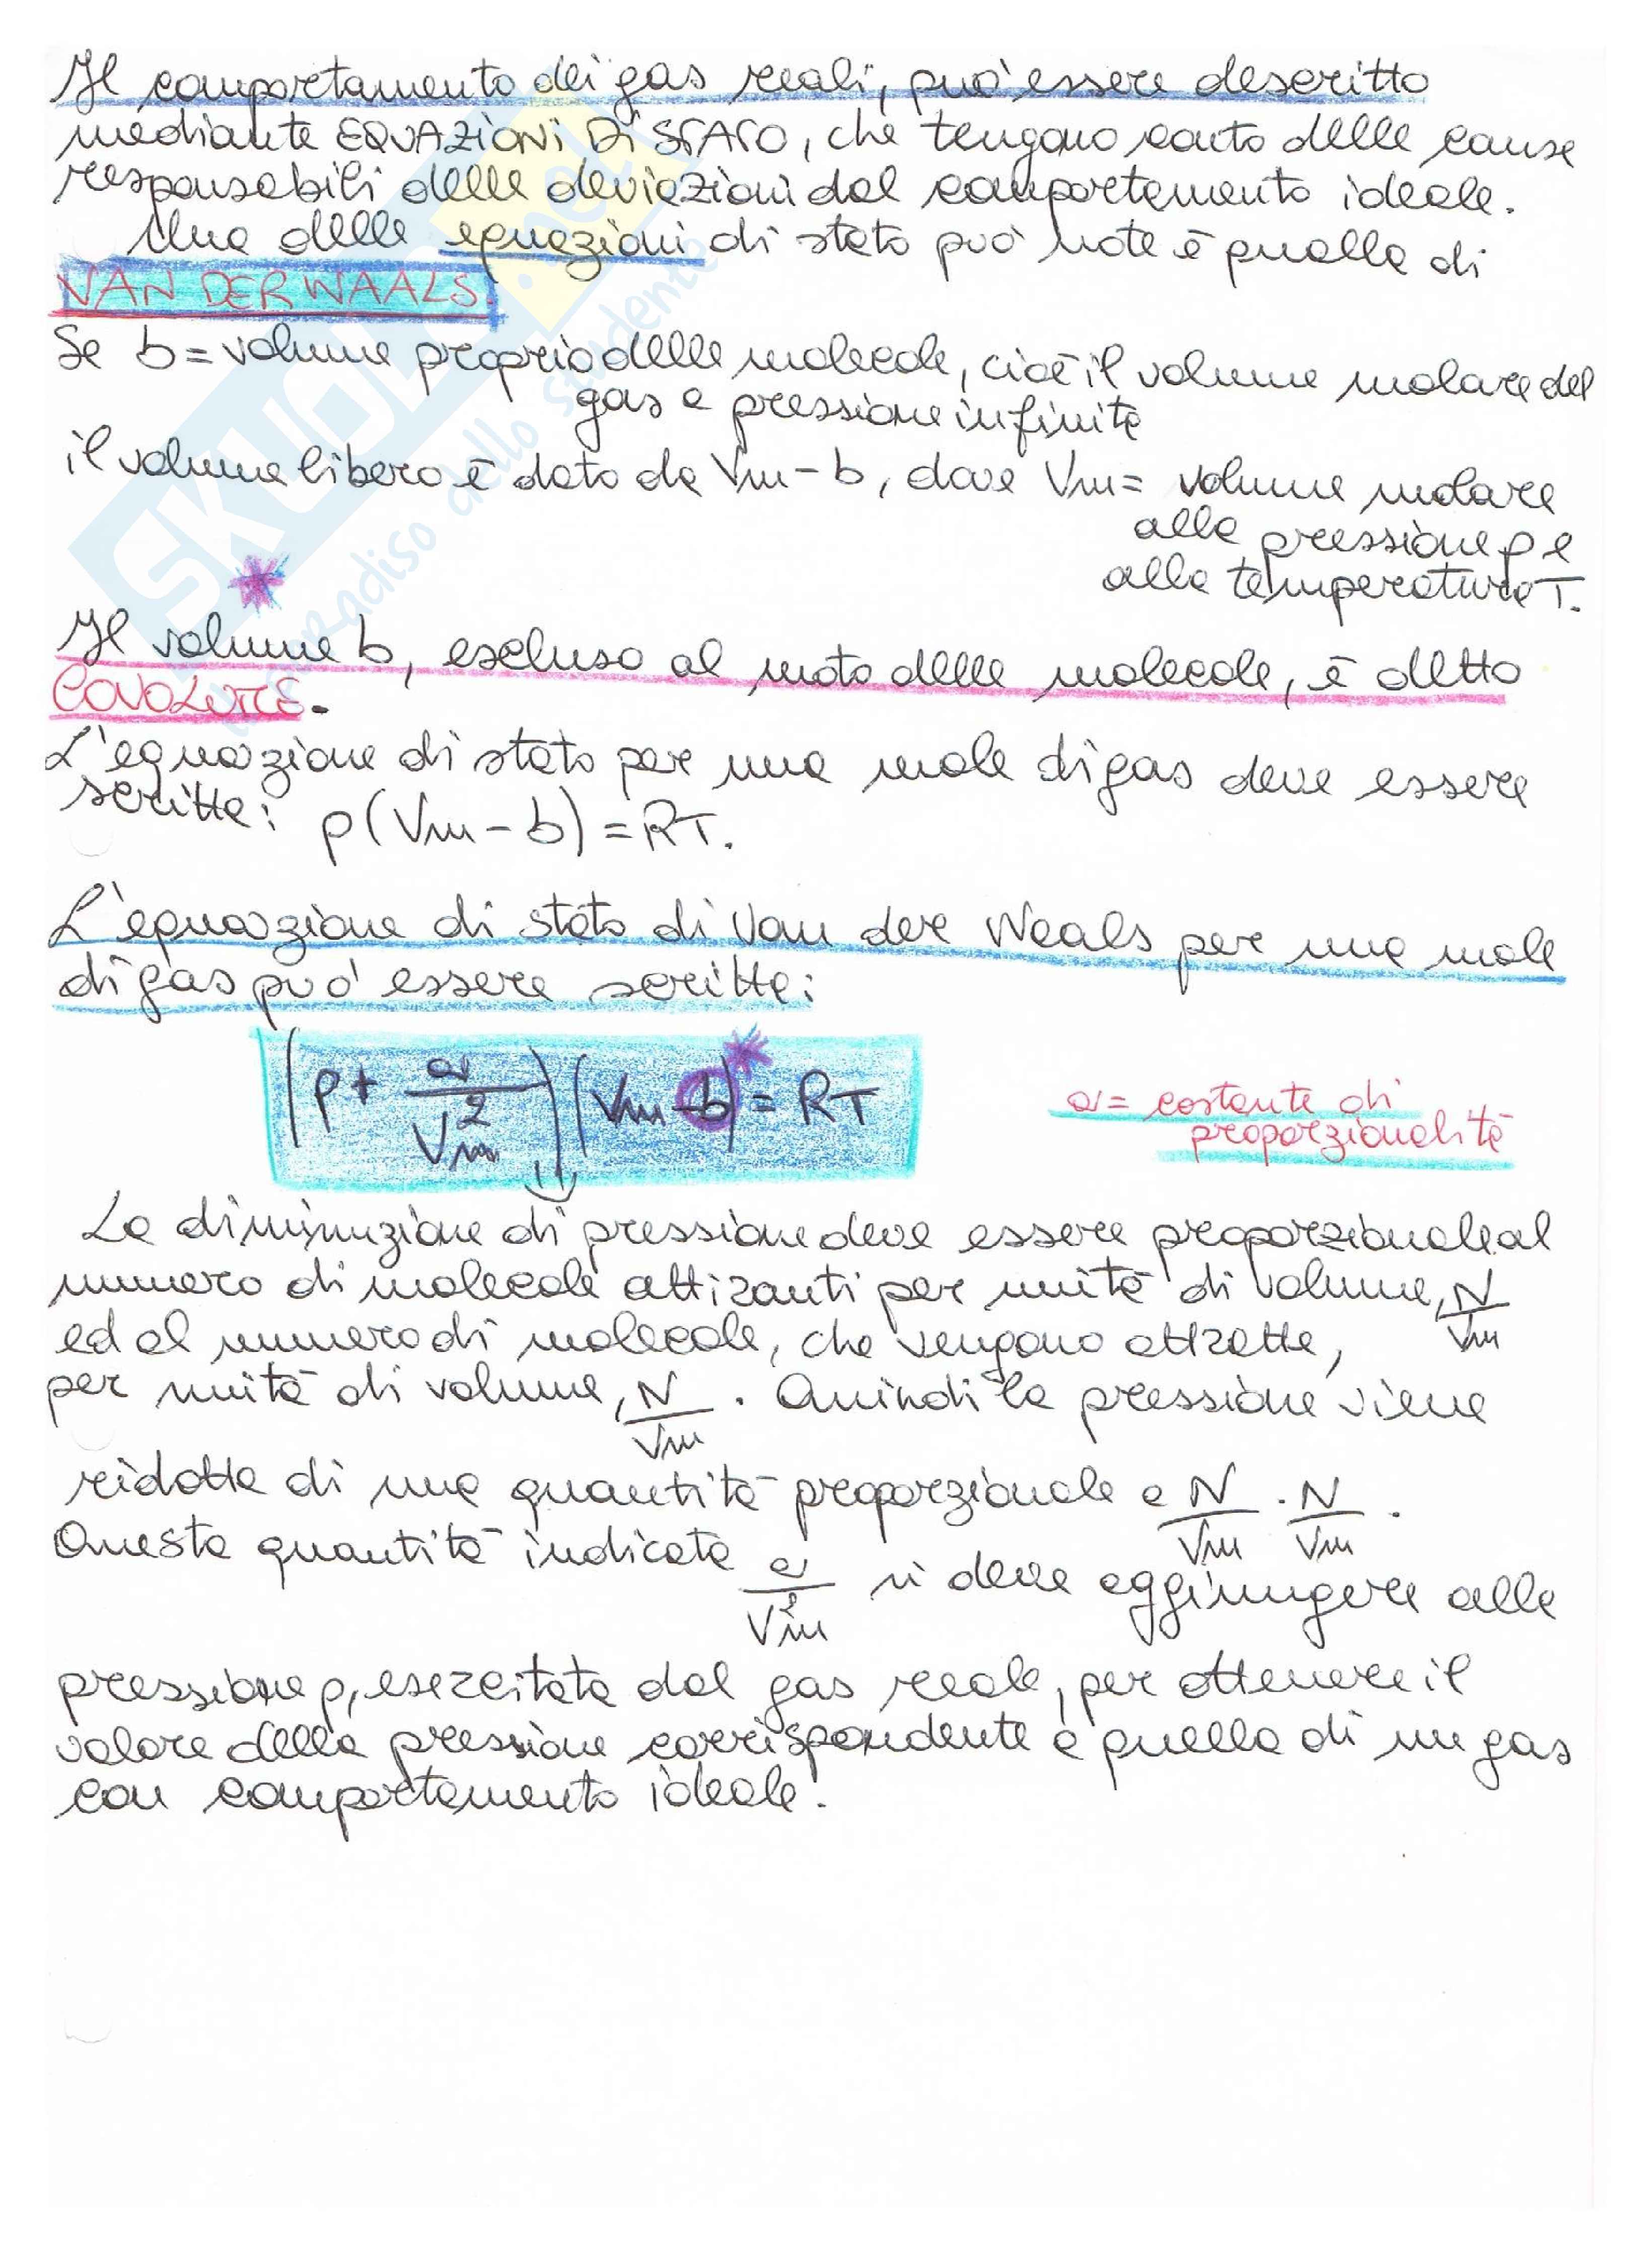 Il comportamento dei gas reali, può essere descritto
mediante EQUAZIONI DI STATO, che tengano conto delle cause
responsabili delle deviazioni dal comportamento ideale.
Una delle equazioni di stato può note è quella di
VAN DER WAALS.
Se b = volume proprio delle molecole, cioè il volume molare del
gas a pressione infinita
il volume libero è dato da Vm - b, dove Vm = volume molare
alla pressione p e
alla temperatura T.
Il volume b, escluso al moto delle molecole, è detto
COVOLUME.
L'equazione di stato per una mole di gas deve essere
scritta: p(Vm - b) = RT.
L'equazione di stato di Van der Waals per una mole
di gas può essere scritta:
(p + a/Vm²)(Vm - b) = RT
a = costante di
proporzionalità
La diminuzione di pressione deve essere proporzionale al
numero di molecole attiranti per unità di volume, N/Vm
ed al numero di molecole, che vengono attratte,
per unità di volume, N/Vm. Quindi la pressione viene
ridotta di una quantità proporzionale a N/Vm · N/Vm.
Questa quantità indicata a/Vm² si deve aggiungere alla
pressione p, esercitata dal gas reale, per ottenere il
valore della pressione corrispondente a quella di un gas
con comportamento ideale.
SKUOLA.net
il paradiso dello studente